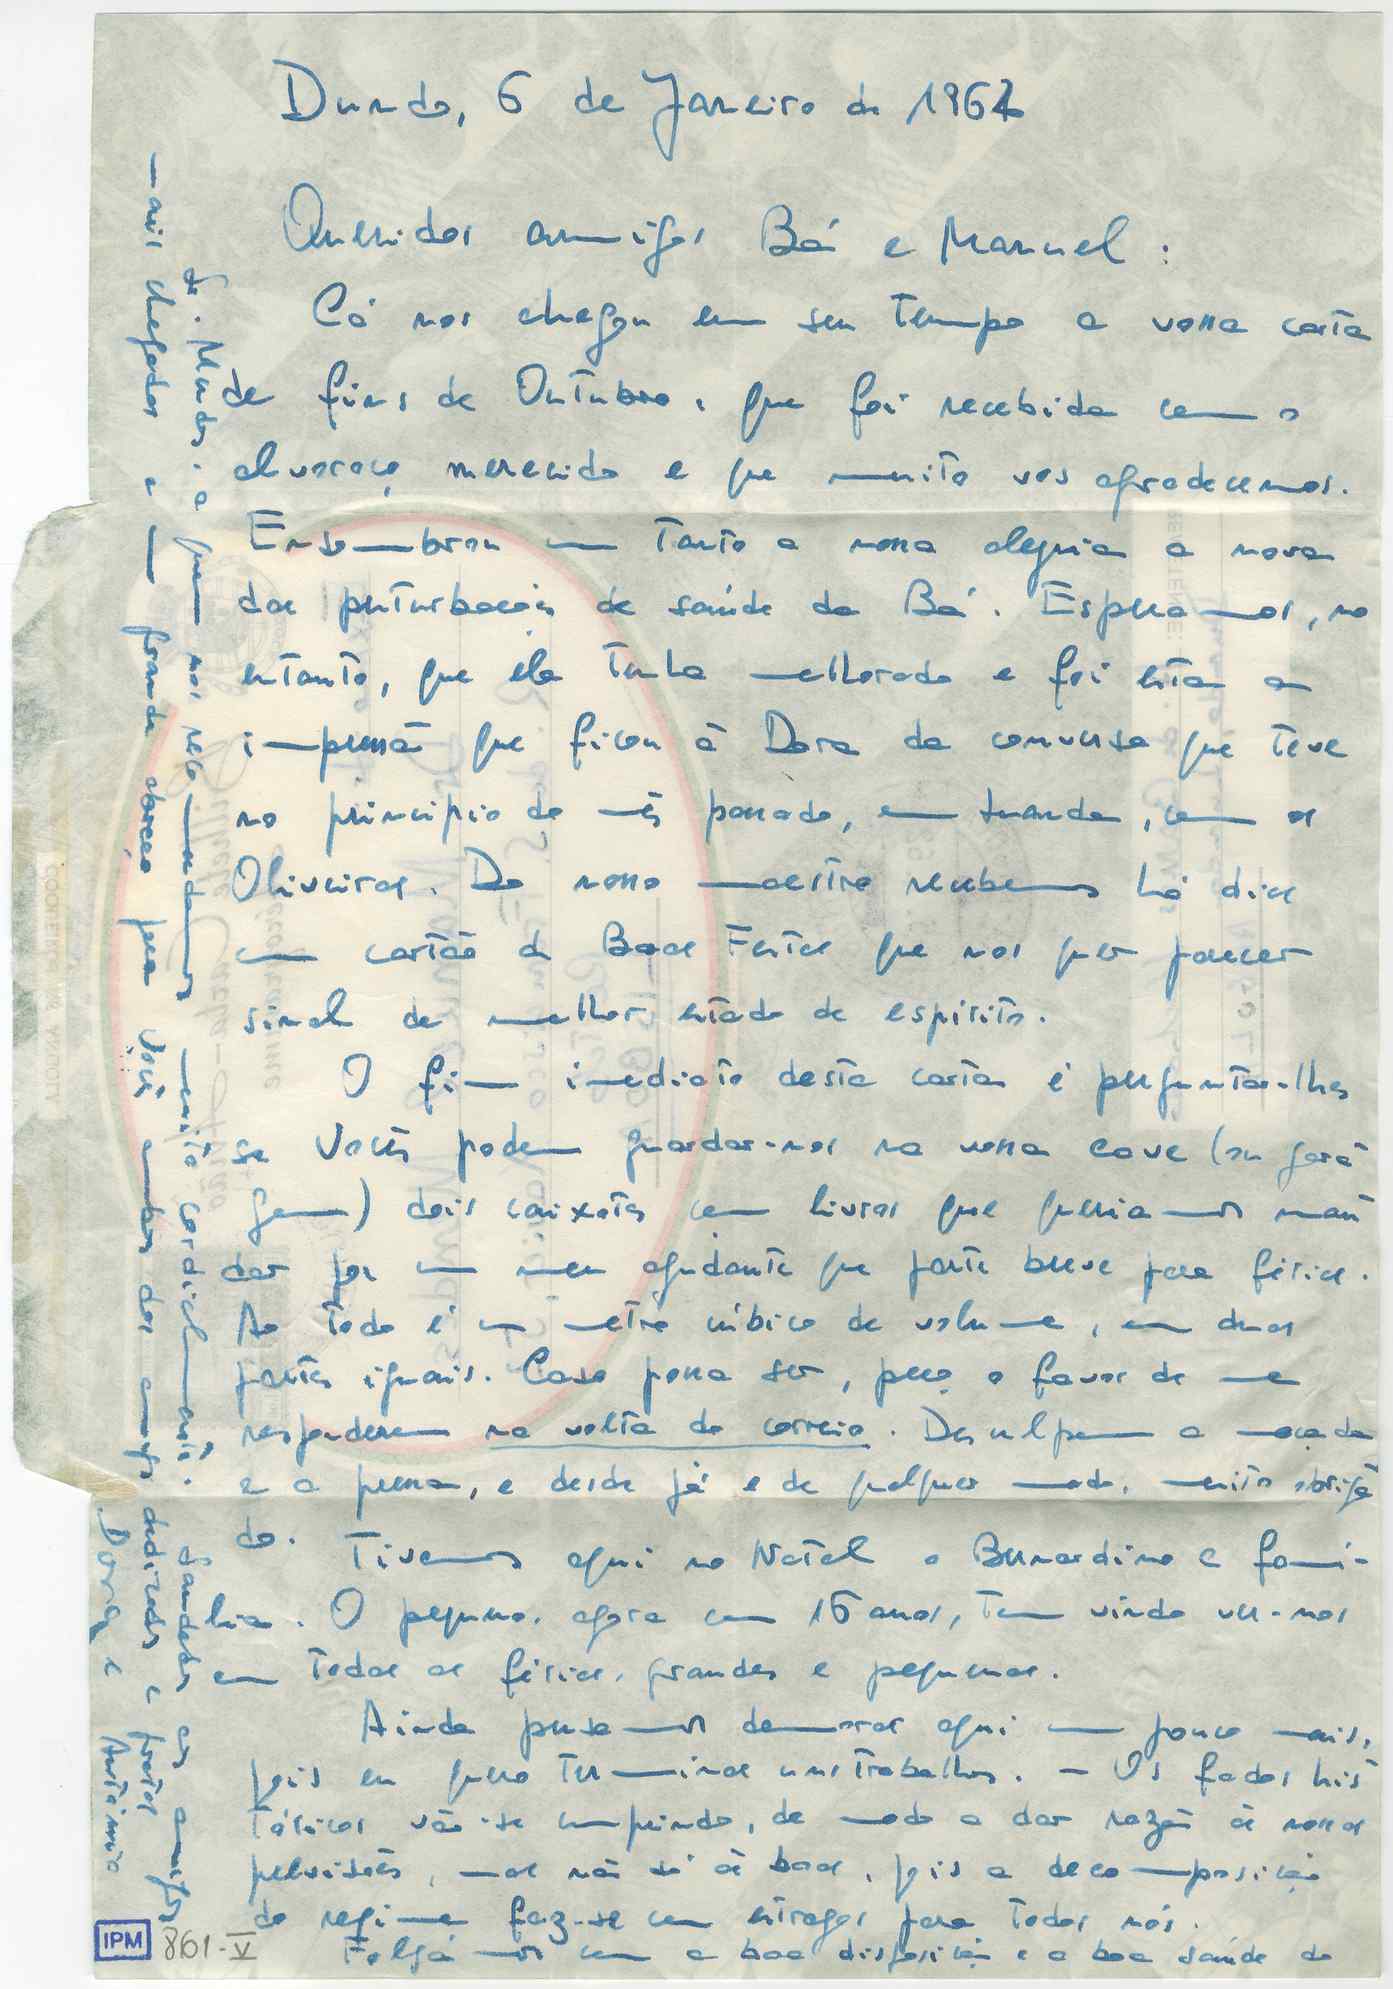 Dundo, 6 de Janeiro de 1962
Queridos amigos Bá e Manuel:
Cá nos chegou em seu tempo a vossa carta
de fins de Outubro, que foi recebida com o
alvoroço merecido e que muito vos agradecemos.
Ensombrou um tanto a nossa alegria a nova
das perturbações de saúde da Bá. Esperamos, no
entanto, que ela tenha melhorado e foi esta a
impressão que ficou à Dora da conversa que teve
no princípio do mês passado, em Luanda, com os
Oliveiras. Do nosso maestro recebemos há dias
um cartão de Boas Festas que nos quer parecer
sinal de melhor estado de espírito.
O fim imediato desta carta é perguntar-lhes
se Vocês podem guardar-nos na vossa cave (ou gara
gem) dois caixotes com livros que queriamos man
dar por um meu ajudante que parte breve para férias.
Ao todo é um metro cúbico de volume, em duas
partes iguais. Caso possa ser, peço o favor de me
responderem na volta do correio. Desculpem a maçada
e a pressa, e desde já e de qualquer modo, muito obriga
do.
Tivemos aqui no Natal o Bernardino e famí-
lia. O pequeno, agora com 16 anos, tem vindo ver-nos
em todas as férias, grandes e pequenas.
Ainda pensamos demorar aqui um pouco mais,
pois eu quero terminar uns trabalhos. - Os fados his
tóricos vão-se cumprindo, de modo a dar razão às nossas
previsões, mas não só às boas, pois a decomposição
do regime faz-se com estragos para todos nós.
Folgámos com a boa disposição e a boa saúde do
dr. Mendes, a quem nos recomendamos muito cordialmente. Saudades aos amigos
mais chegados e um grande abraço para Vocês ambos dos amigos dedicados e gratos
Dora e António
IPM
861-V